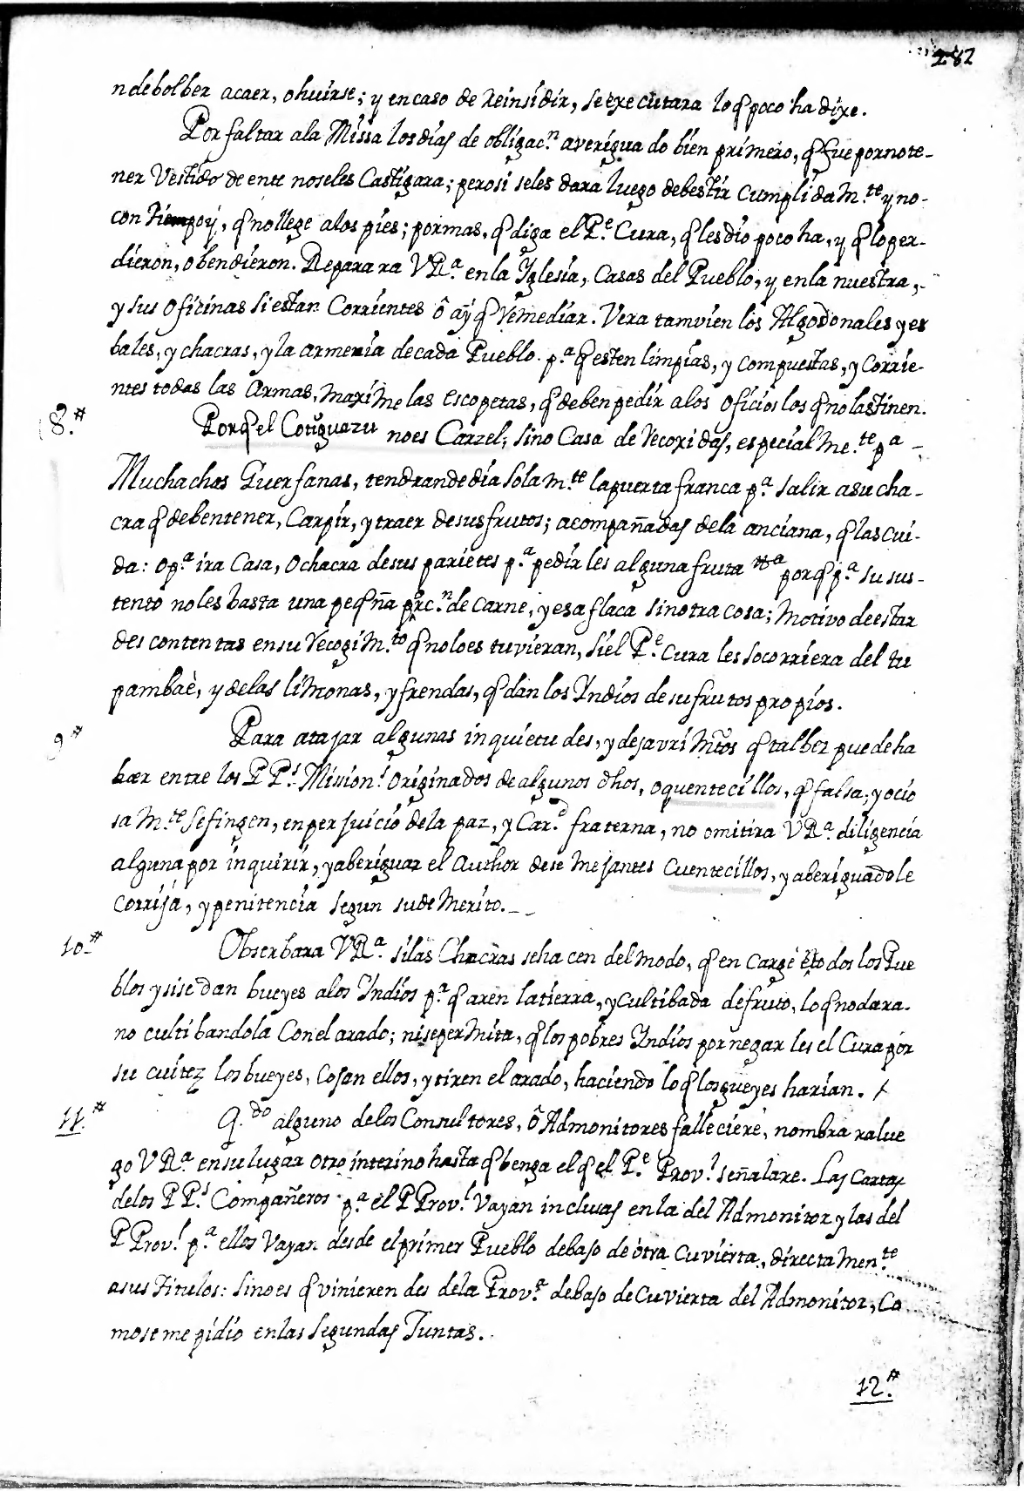 282
n debolber acaer, ohuirse; y encaso de Reinsidir, se exe cutara lo q̃ poco ha dixe.
Por faltar ala Missa los dias de obligac.ⁿ averigua do bien primero, q̃ fue por note-
ner Vestido de ente noseles Castigara; perosi seles dara luego debestir Cumplida M.te y no-
con, q̃ no llege alos pies; pormas, q̃ diga el P.e Cura, q̃ lesdio poco ha, y q̃ loper-
dieron, obendieron. Reparara VR.a enla Yglesia, Casas del Pueblo, y enla nuestra,
y sus oficinas siestan Corrientes ô aÿ q̃ remediar. Vera tamvien los Algodonales y er
bales, y chacras, y la armeria decada Pueblo. p.a q̃ esten limpias, y compuestas, y corrie-
ntes todas las Armas, maxi Me las escopetas, q̃ deben pedir alos oficios los q̃ no lastinen.
8.# Porq̃ el Cotiguazu noes Carzel, sino Casa de recoxidas, especial Me.te p.a
Muchachas Guerfanas, tendrandedia sola M.te la puerta franca p.a salir asu cha-
cra q̃ debentener, Carpir, y traer desusfrutos; acompañadas dela anciana, q̃ lascui-
da: o p.a ira Casa, o chacra desus parietes p.a pedirles alguna fruta porq̃ p.a su sus-
tento noles basta una peq̃ña porc.ⁿ de carne, y esa flaca sinotra cosa; Motivo deestar
des contentas ensu recogiM.to q̃ noloes tuvieran, siel P.e Cura les socorriera del tu
pambaè, y delas limonas, y frendas, q̃ dan los Yndios desu frutos propios.
9# Para atajar algunas inquietu des, y desavriMtos q̃ talbez puedeha
baer entre los PP.s Mission.s originados de algunos dhos, oquentecillos, q̃ falsa, y ocio
sa M.te sefingen, en per juicio dela paz, y Car.d fraterna, no omitira VR.a diligencia
alguna por inquirir, y aberiguar el Author dese mejantes Cuentecillos, y aberiguadole
corrija, y penitencia segun sude Merito.--
10.# Obserbara VR.a silas Chacras seha cen del modo, q̃ en Cargè to dos los Pue
blos y sise dan bueyes alos Yndios p.a q̃ aren latierra, y cultibada defruto, lo q̃ nodara-
no culti bandola Conel arado; nisepermita, q̃ los pobres Yndios por negar les el Cura por
su cuitez los bueyes, cojan ellos, y tiren el arado, haciendo lo q̃ los gueyes harian.
11.# Q.do alguno delos Consultores, ô Admonitores falleciere, nombra ra lue
go VR.a ensu lugar otro interino hasta q̃ benga el q̃ el P.e Prov.l señalare. Las Cartas
delos PP.s Compañeros p.a el P Prov.l Vayan inclusas enla del Admonitor y las del
P Prov.l p.a ellos Vayan desde el primer Pueblo debajo de otra cuvierta, directa Men.te
asus Titulos: sinoes q̃ vinieren des dela Prov.a debajo de Cuvierta del Admonitor, Co
mose me pidio enlas segundas Juntas.
12.#